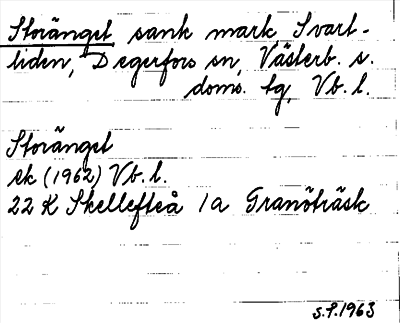 Storänget sank mark Svart-
liden, Degerfors sn, Västerb. s.
doms. tg, Vb. l.
Storänget
ek (1962) Vb. l.
22 K Skellefteå 1a Granöträsk
S.P. 1963